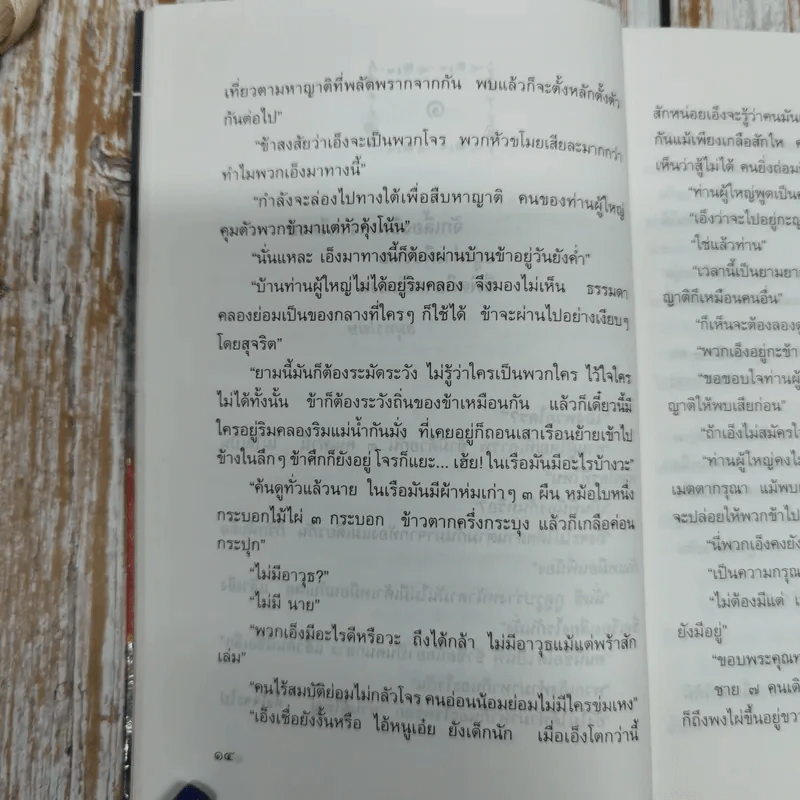 เที่ยวตามหาญาติที่พลัดพรากจากกัน พบแล้วก็จะตั้งหลักตั้งตัว
กันต่อไป”
“ข้าสงสัยว่าเอ็งจะเป็นพวกโจร พวกหัวขโมยเสียละมากกว่า
ทำไมพวกเอ็งมาทางนี้”
“กำลังจะล่องไปทางใต้เพื่อสืบหาญาติ คนของท่านผู้ใหญ่
คุมตัวพวกข้ามาแต่หัวคุ้งโน้น”
“นั่นแหละ เอ็งมาทางนี้ก็ต้องผ่านบ้านข้าอยู่วันยังค่ำ”
“บ้านท่านผู้ใหญ่ไม่ได้อยู่ริมคลอง จึงมองไม่เห็น ธรรมดา
คลองย่อมเป็นของกลางที่ใครๆ ก็ใช้ได้ ข้าจะผ่านไปอย่างเงียบๆ
โดยสุจริต”
“ยามนี้มันก็ต้องระมัดระวัง ไม่รู้ว่าใครเป็นพวกใคร ไว้ใจใคร
ไม่ได้ทั้งนั้น ข้าก็ต้องระวังถิ่นของข้าเหมือนกัน แล้วก็เดี๋ยวนี้มี
ใครอยู่ริมคลองริมแม่น้ำกันมั่ง ที่เคยอยู่ก็ถอนเสาเรือนย้ายเข้าไป
ข้างในลึกๆ ข้าศึกก็ยังอยู่ โจรก็แยะ... เฮ้ย! ในเรือมันมีอะไรบ้างวะ”
“ค้นดูทั่วแล้วนาย ในเรือมันมีผ้าห่มเก่าๆ ๓ ผืน หม้อใบหนึ่ง
กระบอกไม้ไผ่ ๓ กระบอก ข้าวตากครึ่งกระบุง แล้วก็เกลือค่อน
กระปุก”
“ไม่มีอาวุธ?”
“ไม่มี นาย”
“พวกเอ็งมีอะไรดีหรือวะ ถึงได้กล้า ไม่มีอาวุธแม้แต่พร้าสัก
เล่ม”
“คนไร้สมบัติย่อมไม่กลัวโจร คนอ่อนน้อมย่อมไม่มีใครข่มเหง”
“เอ็งเชื่อยังงั้นหรือ ไอ้หนูเอ๋ย ยังเด็กนัก เมื่อเอ็งโตกว่านี้
๑๔
สักหน่อยเอ็งจะรู้ว่าคนมัน
กันแม้เพียงเกลือสักไห
เห็นว่าสู้ไม่ได้ คนยิ่งถ่อม
“ท่านผู้ใหญ่พูดเป็น
“เอ็งว่าจะไปอยู่กะญ
“ใช่แล้วท่าน”
“เวลานี้เป็นยามยา
ญาติก็เหมือนคนอื่น”
“ก็เห็นจะต้องลองดู
“พวกเอ็งอยู่กะข้า
“ขอขอบใจท่านผู้
ญาติให้พบเสียก่อน”
“ถ้าเอ็งไม่สมัครใ
“ท่านผู้ใหญ่คงไม
เมตตากรุณา แม้พบ
จะปล่อยให้พวกข้าไป
“นี่พวกเอ็งคงยัง
“เป็นความกรุณ
“ไม่ต้องมีแต่
ยังมีอยู่”
“ขอบพระคุณท
ชาย ๗ คนเดิ
ก็ถึงพงไผ่ขึ้นอยู่ขว